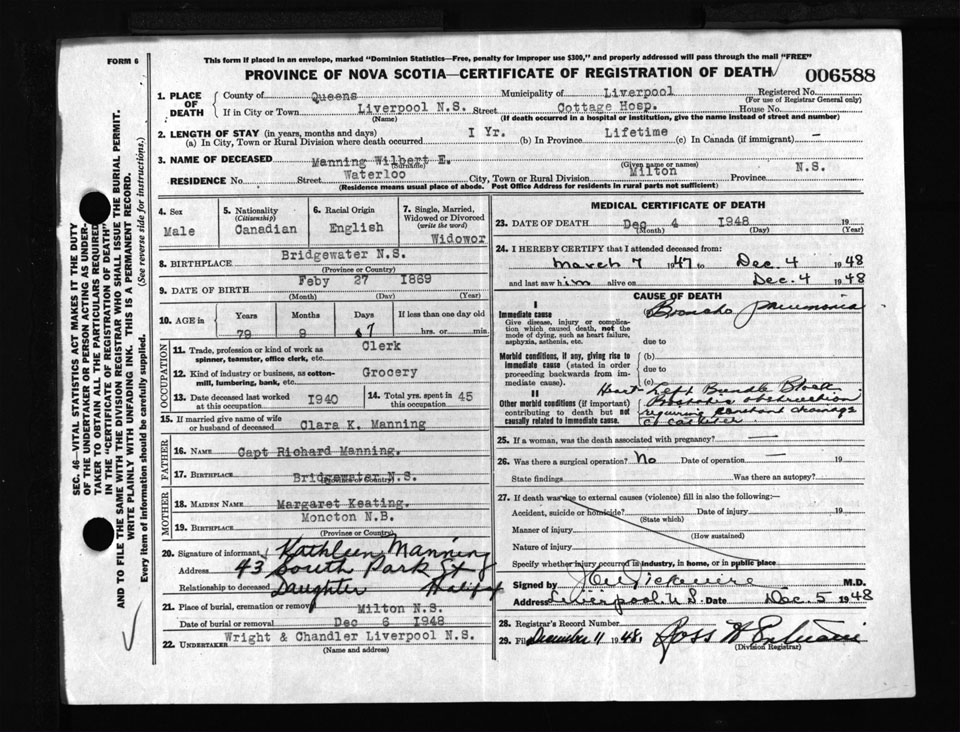 FORM 6
This form if placed in an envelope, marked "Dominion Statistics—Free, penalty for improper use $300," and properly addressed will pass through the mail "FREE"
PROVINCE OF NOVA SCOTIA—CERTIFICATE OF REGISTRATION OF DEATH 006588
1. PLACE OF DEATH
County of Queens Municipality of Liverpool Registered No.
(For use of Registrar General only)
If in City or Town Liverpool N.S. Street Cottage Hosp. House No.
(Name) (If death occurred in a hospital or institution, give the name instead of street and number)
2. LENGTH OF STAY (in years, months and days)
(a) In City, Town or Rural Division where death occurred 1 Yr. (b) In Province Lifetime (c) In Canada (if immigrant) —
3. NAME OF DECEASED Manning Wilbert E.
(Surname) (Given name or names)
RESIDENCE No. Street Waterloo City, Town or Rural Division Milton Province N.S.
(Residence means usual place of abode. Post Office Address for residents in rural parts not sufficient)
4. Sex Male
5. Nationality (Citizenship) Canadian
6. Racial Origin English
7. Single, Married, Widowed or Divorced (write the word) Widowor
8. BIRTHPLACE Bridgewater N.S.
(Province or Country)
9. DATE OF BIRTH Feby 27 1869
(Month) (Day) (Year)
10. AGE in Years Months Days If less than one day old
79 9 7 hrs. or min.
OCCUPATION
11. Trade, profession or kind of work as spinner, teamster, office clerk, etc. Clerk
12. Kind of industry or business, as cotton-mill, lumbering, bank, etc. Grocery
13. Date deceased last worked at this occupation 1940
14. Total yrs. spent in this occupation 45
15. If married give name of wife or husband of deceased Clara K. Manning
FATHER
16. NAME Capt Richard Manning.
17. BIRTHPLACE Bridgewater N.S.
(Province or Country)
MOTHER
18. MAIDEN NAME Margaret Keating.
19. BIRTHPLACE Moncton N.B.
(Province or Country)
20. Signature of informant Kathleen Manning
Address 43 South Park St
Relationship to deceased Daughter Halifax
21. Place of burial, cremation or removal Milton N.S.
Date of burial or removal Dec 6 1948
22. UNDERTAKER Wright & Chandler Liverpool N.S.
(Name and address)
MEDICAL CERTIFICATE OF DEATH
23. DATE OF DEATH Dec 4 1948 19
(Month) (Day) (Year)
24. I HEREBY CERTIFY that I attended deceased from:
March 7 1947 to Dec. 4 1948
and last saw him alive on Dec. 4 1948
CAUSE OF DEATH
I
Immediate cause
Give disease, injury or complication which caused death, not the mode of dying, such as heart failure, asphyxia, asthenia, etc.
Broncho pneumonia
due to
Morbid conditions, if any, giving rise to immediate cause (stated in order proceeding backwards from immediate cause).
(b)
due to
(c)
II
Other morbid conditions (if important) contributing to death but not causally related to immediate cause.
Heart - Left Bundle Block
Prostatic obstruction
requiring constant drainage
by catheter.
25. If a woman, was the death associated with pregnancy? —
26. Was there a surgical operation? No Date of operation — 19
State findings Was there an autopsy?
27. If death was due to external causes (violence) fill in also the following:—
Accident, suicide or homicide? Date of injury 19
(State which)
Manner of injury
(How sustained)
Nature of injury
Specify whether injury occurred in industry, in home, or in public place
Signed by M.D.
Address Liverpool N.S. Date Dec. 5 1948
28. Registrar's Record Number
29. Filed December 11 1948
(Division Registrar)
SEC. 46—VITAL STATISTICS ACT MAKES IT THE DUTY
OF THE UNDERTAKER OR PERSON ACTING AS UNDER-
TAKER TO OBTAIN ALL THE PARTICULARS REQUIRED
IN THE "CERTIFICATE OF REGISTRATION OF DEATH" AND TO FILE THE SAME WITH THE DIVISION REGISTRAR WHO SHALL ISSUE THE BURIAL PERMIT.
WRITE PLAINLY WITH UNFADING INK. THIS IS A PERMANENT RECORD.
Every item of information should be carefully supplied. (See reverse side for instructions.)